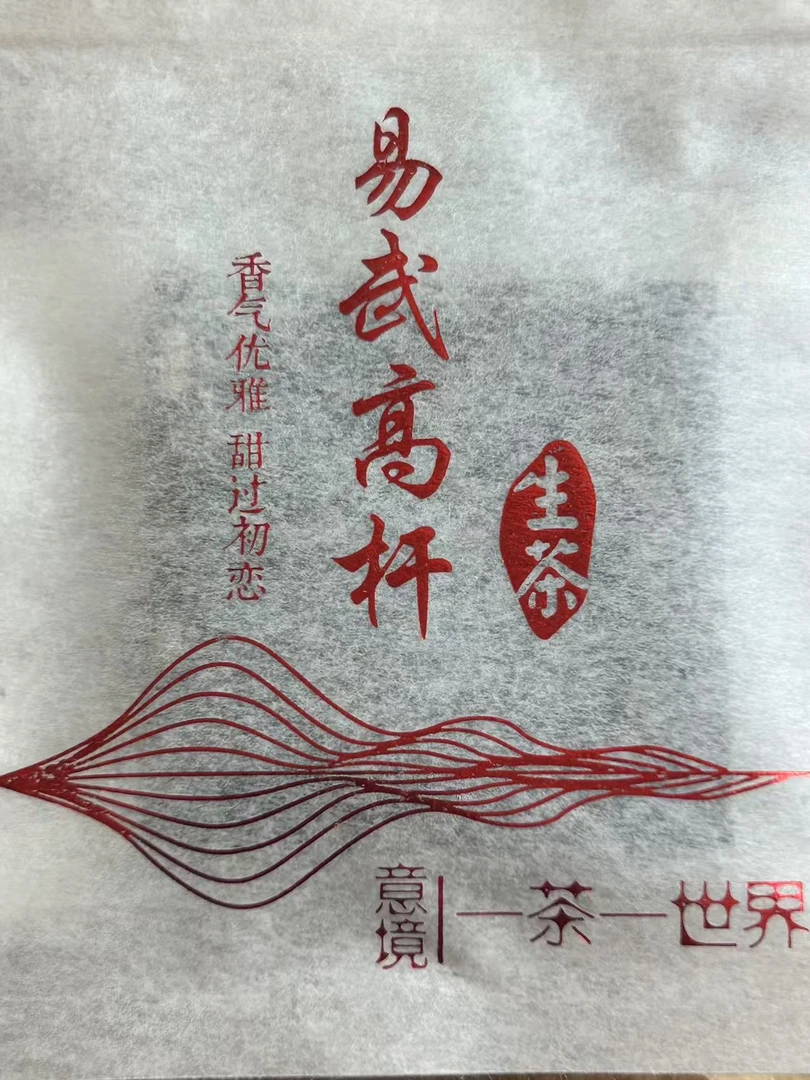 易武高杆
香气优雅 甜过初恋
生茶
意境
一茶一世界